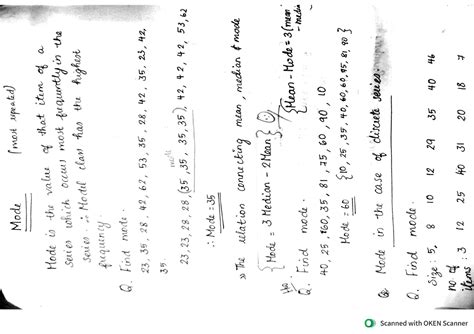 Mode (most repeated)
Mode is the value of that item of a
series which occurs most frequently in the
series ∴ Model class has the highest
frequency.
Q. Find mode.
23, 35, 28, 42, 62, 53, 35, 28, 42, 35, 23, 42,
35
23, 23, 28, 28, (35, 35, 35, 35), 42, 42, 42, 53, 62
∴ Mode = 35
» The relation connecting mean, median & mode
{Mode = 3 Median - 2 Mean} {Mean - Mode = 3 (mean - median
Q. Find mode.
40, 25, 60, 35, 81, 75, 60, 90, 10
Mode = 60 {10, 25, 35, 40, 60, 60, 75, 81, 90}
Q. Mode in the case of discrete series:
Q. Find mode.
Size: 5, 8 10 12 29 35 40 46
no of items: 3 12 25 40 31 20 18 7
Scanned with OKEN Scanner